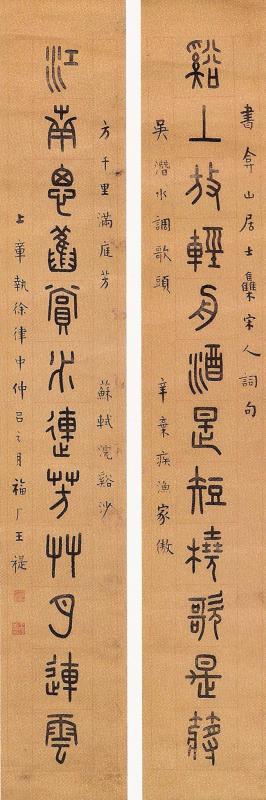 書弇山居士集宋人詞句
谿上放輕舟酒是短橈歌是槳
吳潛水調歌頭
辛棄疾漁家傲
方千里滿庭芳
蘇軾浣谿沙
江南思舊賞水連芳艸月連雲
上章執徐律中仲呂之月福厂王禔